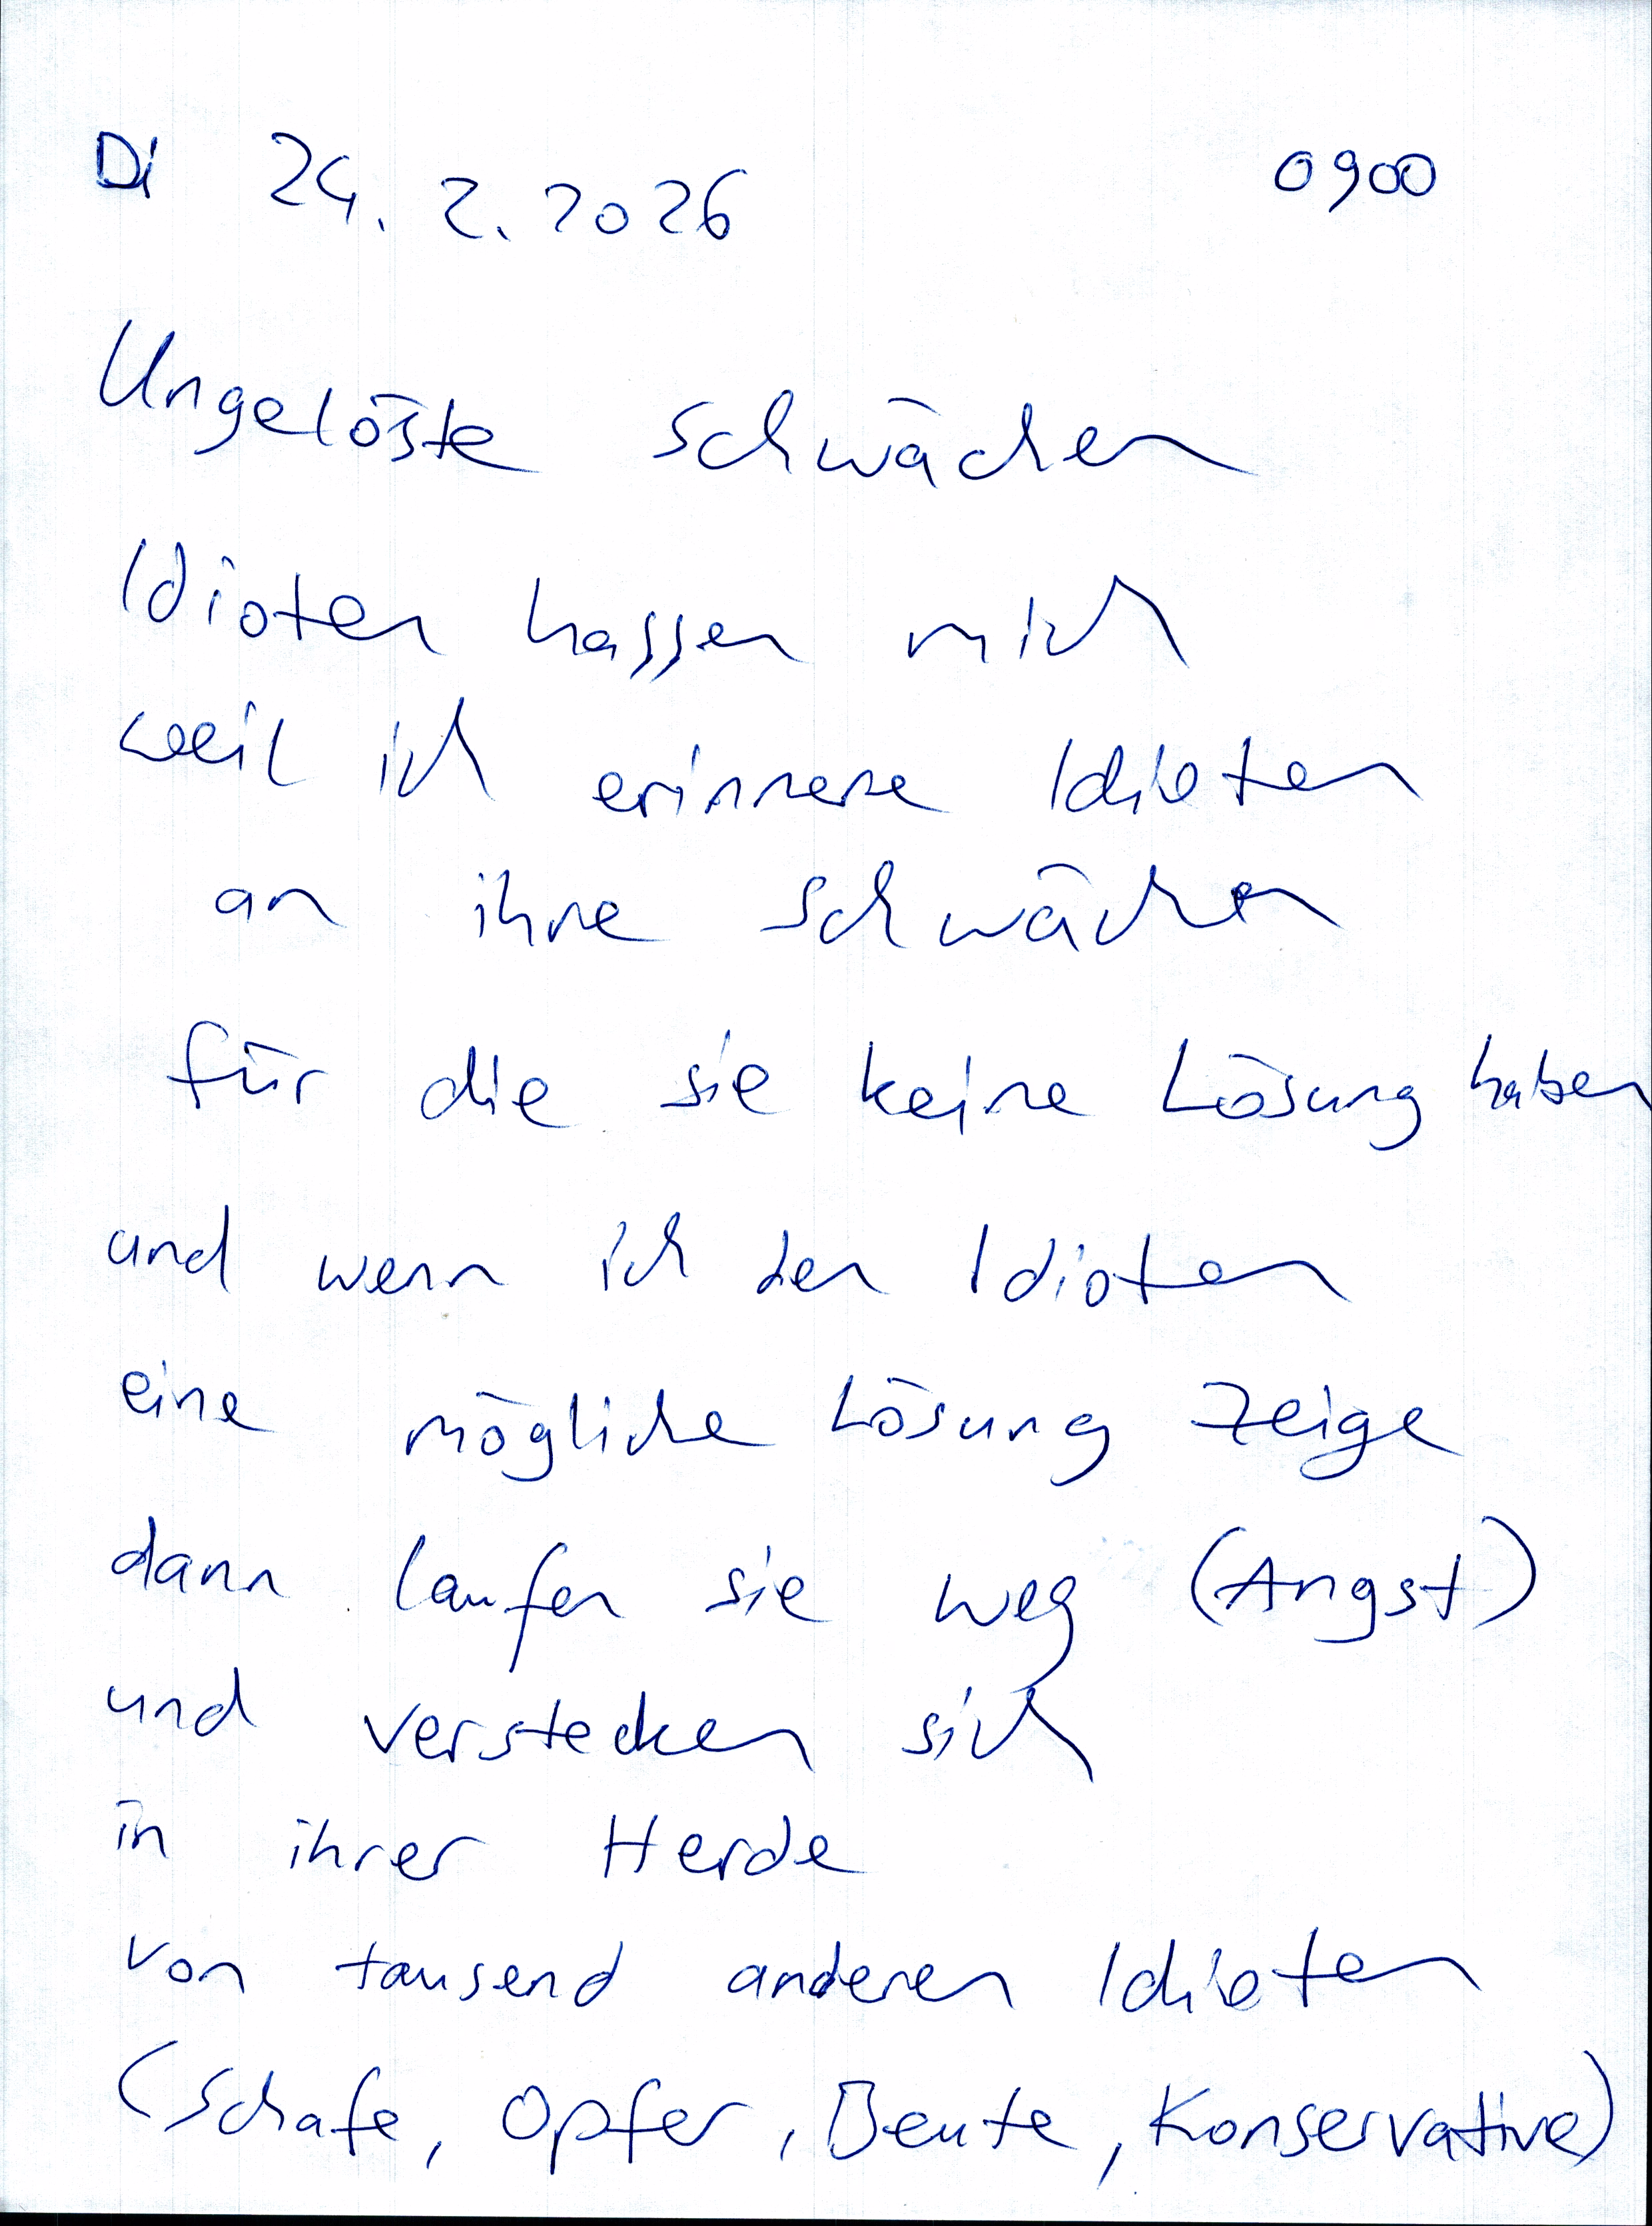 Di 24.2.2026 0900
Ungelöste Schwächen
Idioten hassen mich
weil ich erinnere Idioten
an ihre Schwächen
für die sie keine Lösung haben
und wenn ich den Idioten
eine mögliche Lösung zeige
dann laufen sie weg (Angst)
und verstecken sich
in ihrer Herde
von tausend anderen Idioten
(Schafe, Opfer, Beute, Konservative)